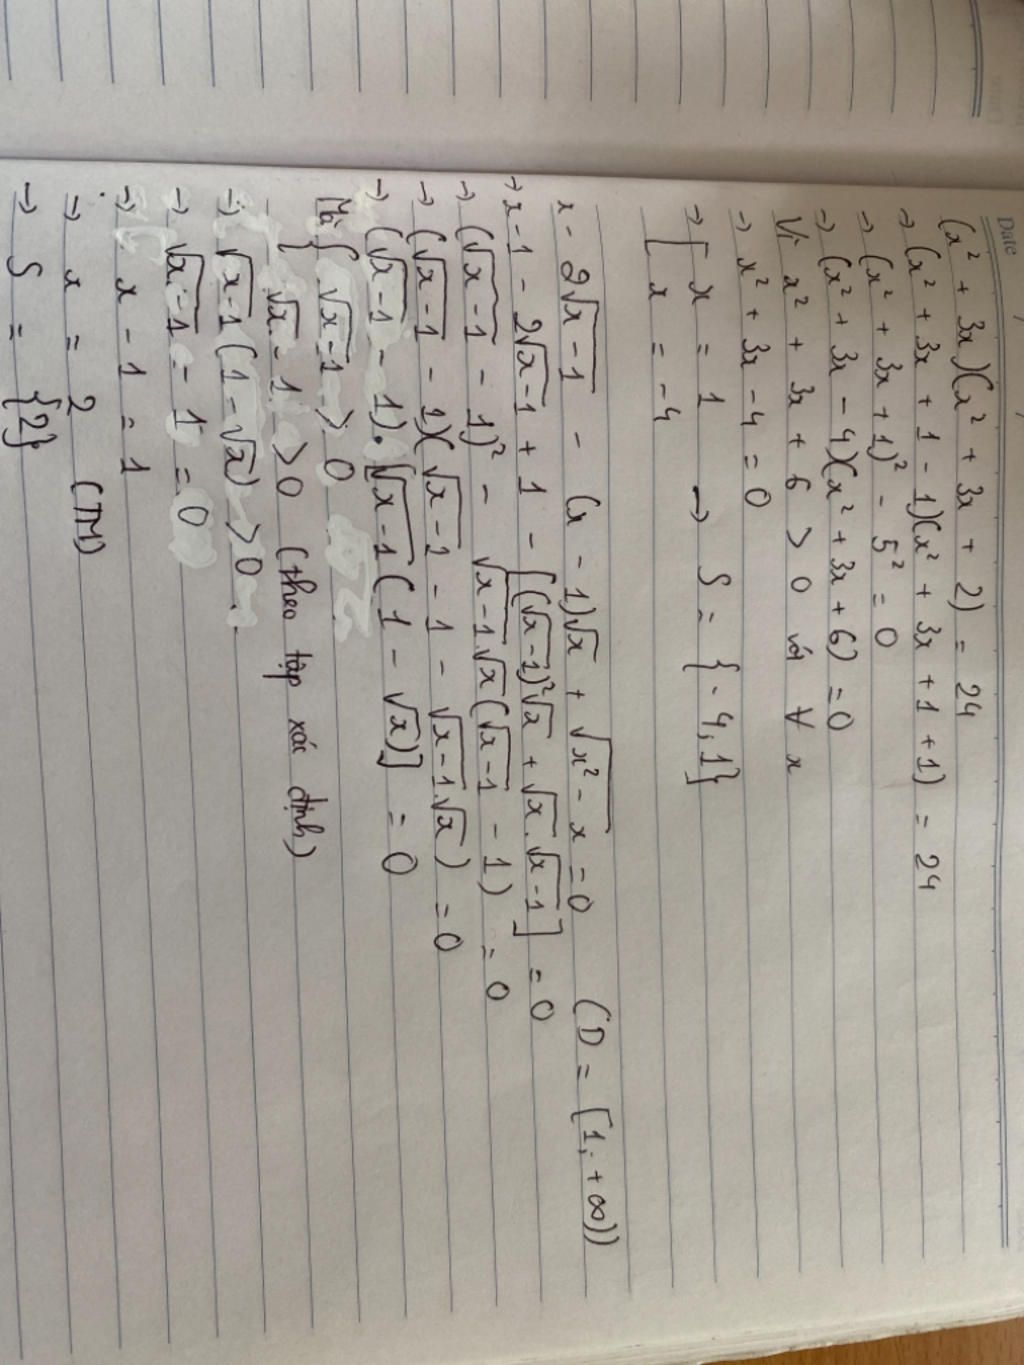 Date
(x² + 3x)(x² + 3x + 2) = 24
→ (x² + 3x + 1 - 1)(x² + 3x + 1 + 1) = 24
→ (x² + 3x + 1)² - 5² = 0
→ (x² + 3x - 4)(x² + 3x + 6) = 0
Vì x² + 3x + 6 > 0 với ∀ x
→ x² + 3x - 4 = 0
→ [ x = 1 → S = {-4, 1}
[ x = -4
x - 2√(x-1) - (x - 1)√x + √(x² - x) = 0 (D = [1; +∞))
→ x - 1 - 2√(x-1) + 1 - [(√(x-1))²√x + √x.√(x-1)] = 0
→ (√(x-1) - 1)² - √(x-1).√x(√(x-1) - 1) = 0
→ (√(x-1) - 1)(√(x-1) - 1 - √(x-1).√x) = 0
→ (√(x-1) - 1).[√(x-1)(1 - √x)] = 0
Mà { √(x-1) > 0
{ √x - 1 > 0 (theo tập xác định)
→ √(x-1)(1 - √x) > 0
→ √(x-1) - 1 = 0
→ x - 1 = 1
→ x = 2 (TM)
→ S = {2}